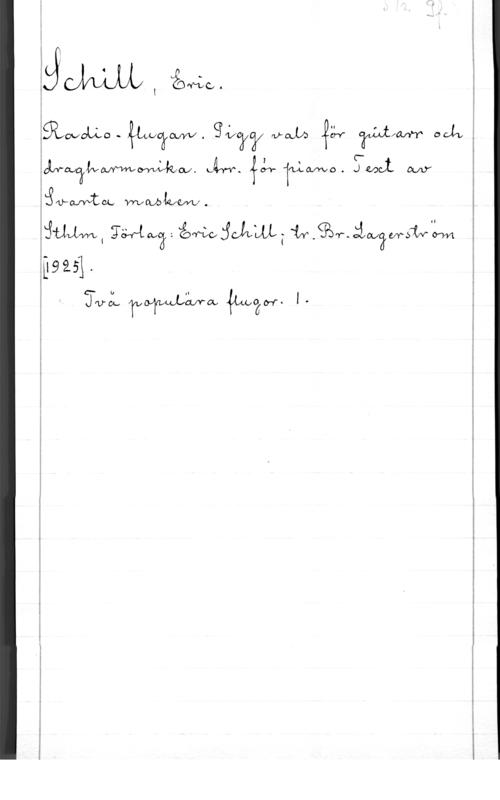 Schill, Eric.
Radio-flugan. Pigg vals för guitarr och
dragharmonika. Arr. för piano. Text av
Svarta masken.
Sthlm, Förlag: Eric Schill; tr. Br. Lagerström
[1925].
Två populära flugor. 1.